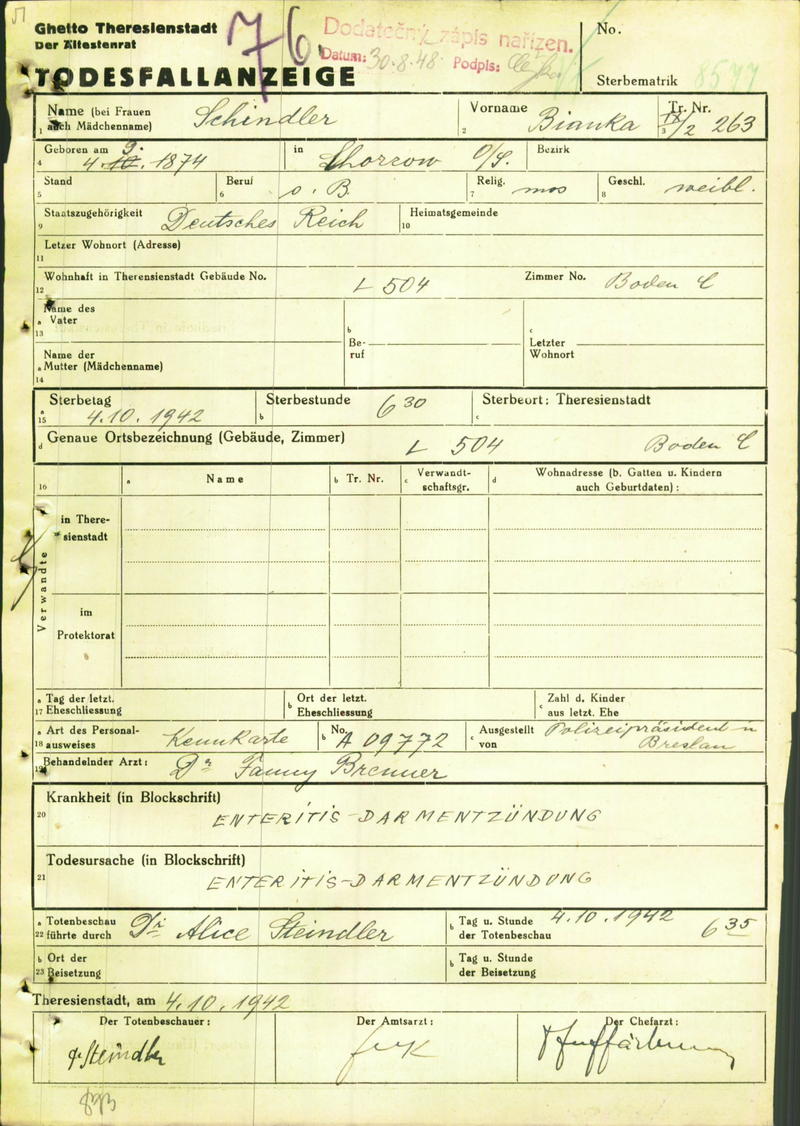 Ghetto Theresienstadt
Der Ältestenrat
76.
Dodatečný zápis nařízen.
Datum: 30.8.48 Podpis:
No.
TODESFALLANZEIGE
Sterbematrik 8577
1 Name (bei Frauen auch Mädchenname) Schindler
2 Vorname Bianka
3 Tr. Nr. IX/2 263
4 Geboren am 4.10. 9. 1874
in Chorzow O/S.
Bezirk
5 Stand
6 Beruf o. B.
7 Relig. mos
8 Geschl. weibl.
9 Staatszugehörigkeit Deutsches Reich
10 Heimatsgemeinde
11 Letzer Wohnort (Adresse)
12 Wohnhaft in Therensienstadt Gebäude No. L 504
Zimmer No. Boden C
13 a Name des Vater
b Beruf
c Letzter Wohnort
14 a Name der Mutter (Mädchenname)
15 a Sterbetag 4.10.1942
b Sterbestunde 6 30
c Sterbeort: Theresienstadt
d Genaue Ortsbezeichnung (Gebäude, Zimmer) L 504 Boden C
16 a Name
b Tr. Nr.
c Verwandt-
schaftsgr.
d Wohnadresse (b. Gatten u. Kindern
auch Geburtdaten) :
Verwandte
in There-
sienstadt
im
Protektorat
17 a Tag der letzt. Eheschliessung
b Ort der letzt. Eheschliessung
c Zahl d. Kinder aus letzt. Ehe
18 a Art des Personal-
ausweises Kennkarte
b No. A 09772
c Ausgestellt von Polizeipräsident in
Breslau
19 Behandelnder Arzt: Dr Fanny Brenner
20 Krankheit (in Blockschrift)
ENTERITIS-DARMENTZÜNDUNG
21 Todesursache (in Blockschrift)
ENTERITIS-DARMENTZÜNDUNG
22 a Totenbeschau führte durch Dr Alice Steindler
b Tag u. Stunde der Totenbeschau 4.10.1942 6 35
23 b Ort der Beisetzung
b Tag u. Stunde der Beisetzung
Theresienstadt, am 4.10.1942
Der Totenbeschauer:
Der Amtsarzt:
Der Chefarzt:
Steindler